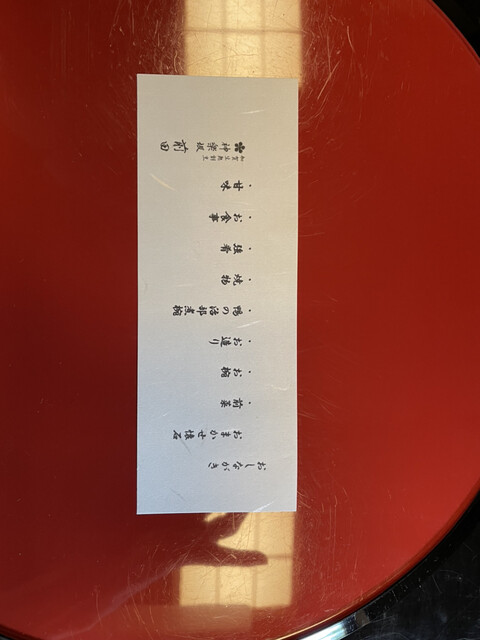 おしながき
おまかせ懐石
・前菜
・お椀
・お造り
・鴨の治部煮椀
・焼物
・強肴
・お食事
・甘味
神楽坂 前田